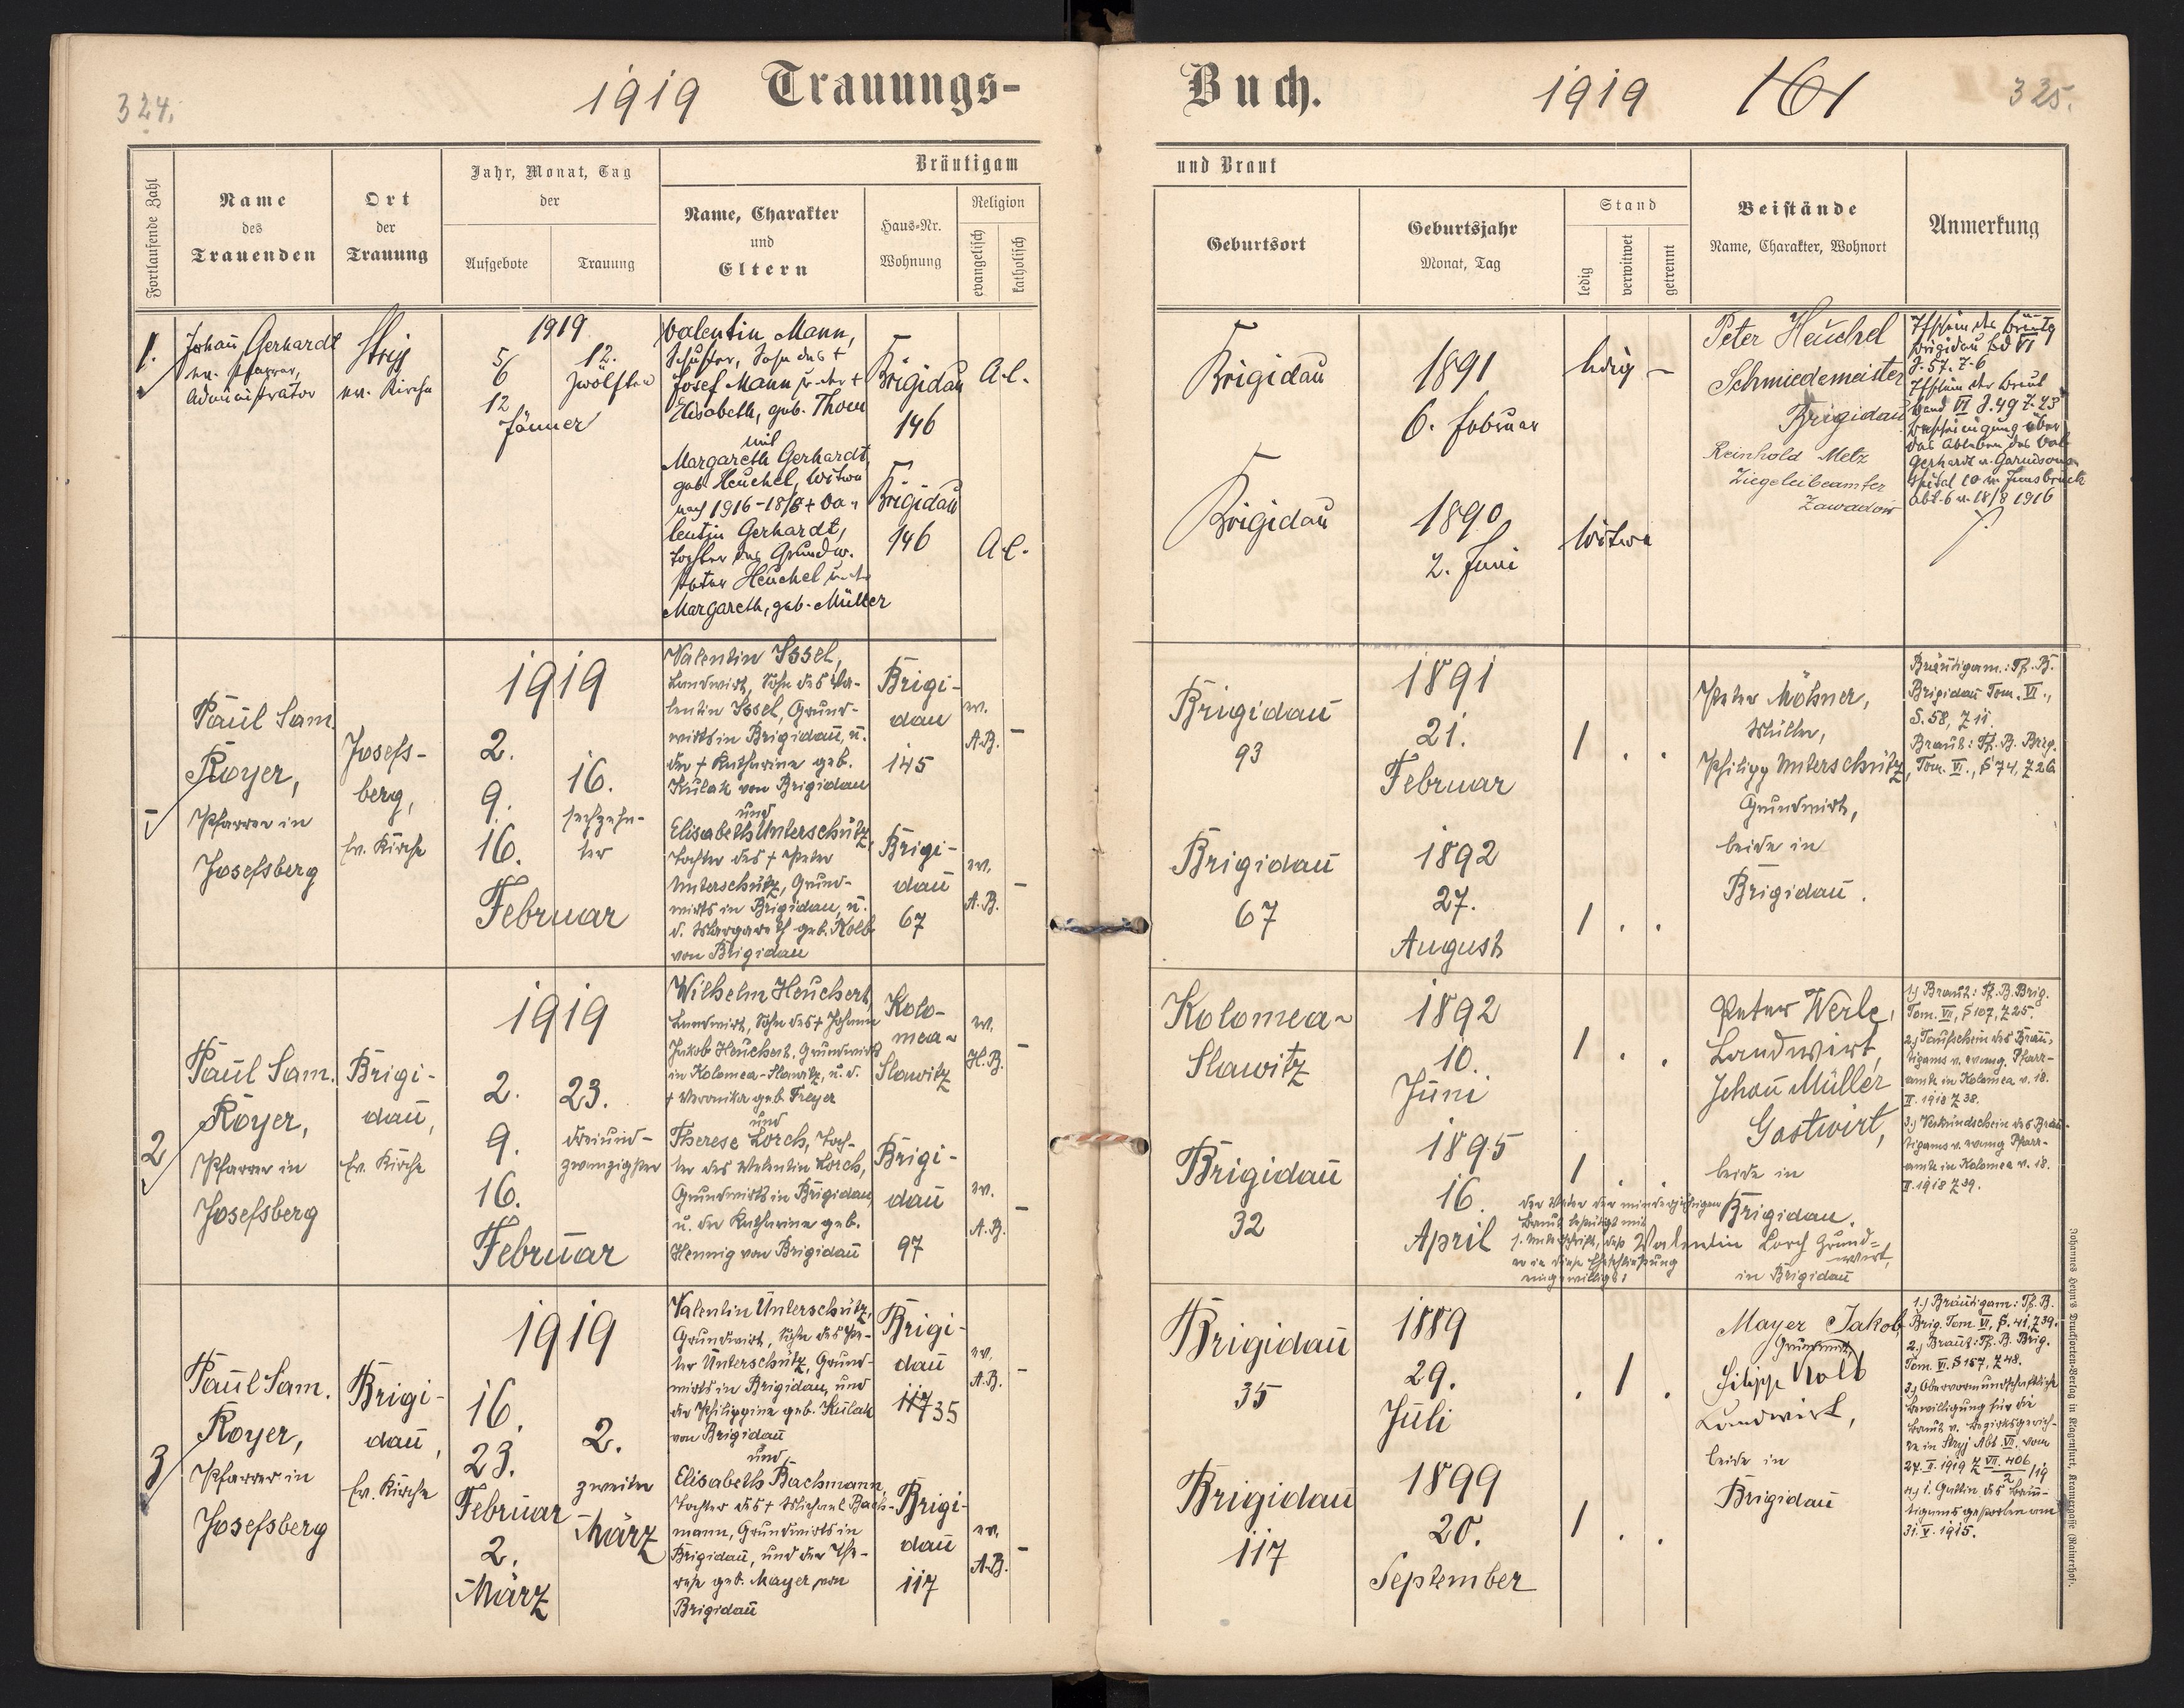 324.
1919 Trauungs-
Fortlaufende Zahl
Name
des
Trauenden
Ort
der
Trauung
Jahr, Monat, Tag
der
Aufgebote
Trauung
Bräutigam
Name, Charakter
und
Eltern
Haus-Nr.
Wohnung
Religion
evangelisch
katholisch
Buch. 1919 161 325.
und Braut
Geburtsort
Geburtsjahr
Monat, Tag
Stand
ledig
verwitwet
getrennt
Beistände
Name, Charakter, Wohnort
Anmerkung
1.
Johañ Gerhardt
ev. Pfarrer,
Administrator
Stryj
ev. Kirche
1919
5/
6
12
Jänner
12.
zwölften
Valentin Mann,
Schuster, Sohn des †
Josef Mann u. der †
Elisabeth, geb. Thom
mit
Margareth Gerhardt,
geb. Heuchel, Witwe
nach 1916-18/8 † Va-
lentin Gerhardt,
Tochter des Grundw.
Peter Heuchel u. der
Margareth, geb. Müller
Brigidau
146
Brigidau
146
A.C.
A.C.
Brigidau
1891
6. Februar
ledig –
Brigidau
1890
2. Juni
Witwe
Peter Heuchel
Schmiedemeister
Brigidau
Reinhold Metz
Ziegeleibeamter
Zawadow
Tfschein des Bräutg
Brigidau Bd VI
S. 57. Z. 6
Tfschein der Braut
Band VI S. 49 Z. 23
Bescheinigung über
das Ableben des Val
Gerhardt v. Garnisons-
spital 10 in Innsbruck
Abt. 6 v. 18/8 1916
Paul Sam.
Royer,
Pfarrer in
Josefsberg
Josefs-
berg,
Ev. Kirche
1919
2.
9.
16.
Februar
16.
sechzehn-
ter
Valentin Issel,
Landwirt, Sohn des Va-
lentin Issel, Grund-
wirts in Brigidau, u.
der † Katharina geb.
Kulak von Brigidau
und
Elisabeth Unterschütz,
Tochter des † Peter
Unterschütz, Grund-
wirts in Brigidau, u.
d. Margareth geb. Kolb
von Brigidau
Brigi-
dau
145
Brigi-
dau
67
ev.
A.B.
–
ev.
A.B.
–
Brigidau
93
1891
21.
Februar
1 . .
Brigidau
67
1892
27.
August
1 . .
Peter Mösner,
Müller,
Philipp Unterschütz,
Grundwirt,
beide in
Brigidau.
Bräutigam.: Tf. B.
Brigidau Tom. VI.,
S. 58, Z 11.
Braut: Tf. B. Brig.
Tom. VI., S 74, Z 26
2
Paul Sam.
Royer,
Pfarrer in
Josefsberg
Brigi-
dau,
Ev. Kirche
1919
2.
9.
16.
Februar
23.
dreiund-
zwanzigster
Wilhelm Heuchert,
Landwirt, Sohn des † Johann
Jakob Heuchert, Grundwirts
in Kolomea-Slawitz, u. d.
† Veronika geb. Freyer
und
Therese Lorch, Toch-
ter des Valentin Lorch,
Grundwirts in Brigidau,
u. der Katharina geb.
Hennig von Brigidau
Kolo-
mea-
Slawitz
Brigi-
dau
97
ev.
H.B.
–
ev.
A.B.
–
Kolomea-
Slawitz
1892
10.
Juni
1 . .
Brigidau
32
1895
16.
April
1 . .
Peter Werle,
Landwirt,
Johañ Müller
Gastwirt,
beide in
Brigidau.
Der Vater der minderjährigen
Braut bestätigt mit
s. Unterschrift, daß
er in diese Eheschließung
eingewilligt:
Valentin Lorch Grund-
wirt,
in Brigidau
1.) Braut: Tf. B. Brig.
Tom. VII, S 107, Z 25.
2.) Taufschein des Bräu-
tigams v. evang. Pfarr-
amte in Kolomea v. 18.
II. 1918 Z 38.
3.) Verkündschein des Bräu-
tigams v. evang. Pfarr-
amte in Kolomea v. 18.
II. 1918 Z 39.
3
Paul Sam.
Royer,
Pfarrer in
Josefsberg
Brigi-
dau,
Ev. Kirche
1919
16.
23.
Februar
2.
März
2.
zweiter
März
Valentin Unterschütz,
Grundwirt, Sohn des Pe-
ter Unterschütz, Grund-
wirts in Brigidau, und
der Philippine geb. Kulak
von Brigidau
und
Elisabeth Bachmann,
Tochter des † Michael Bach-
mann, Grundwirts in
Brigidau, und der The-
rese geb. Mayer, von
Brigidau
Brigi-
dau
117 35
Brigi-
dau
117
ev.
A.B.
–
ev.
A.B.
–
Brigidau
35
1889
29.
Juli
. 1 .
Brigidau
117
1899
20.
September
1 . .
Mayer Jakob
Grundwirt,
Filipp Kolb
Landwirt,
beide in
Brigidau
1.) Bräutigam: Tf. B.
Brig. Tom VI, S. 41, Z 39.
2.) Braut: Tf. B. Brig.
Tom. VI. S 157, Z 48.
3.) Obervormundschaftliche
Bewilligung für die
Braut v. Bezirksgerich-
te in Stryj Abt. VII. vom
27. II. 1919 Z VII. 406/2/19
4.) 1. Gattin des Bräu-
tigams gestorben am
31. V. 1915.
Johannes Heyn's Drucksorten-Verlag in Klagenfurt, Kramergasse (Rainerhof).